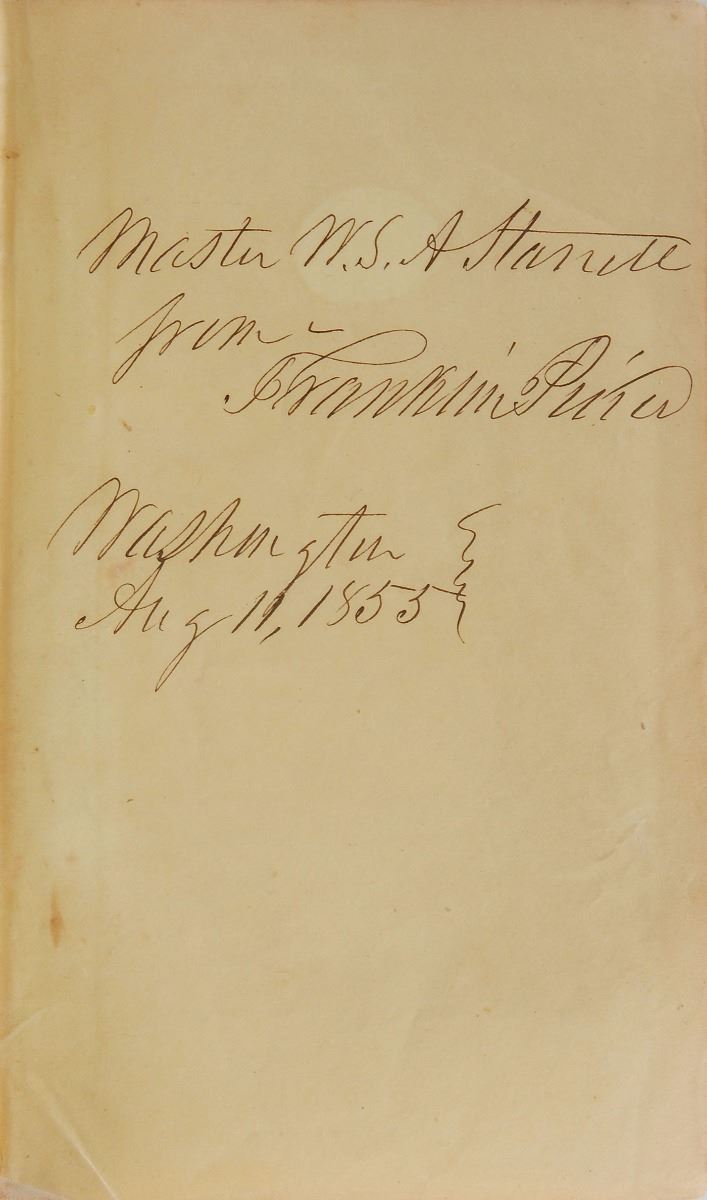 Master W. S. A Starrett
from -
Franklin Pierce
Washington }
Aug 11, 1855 }